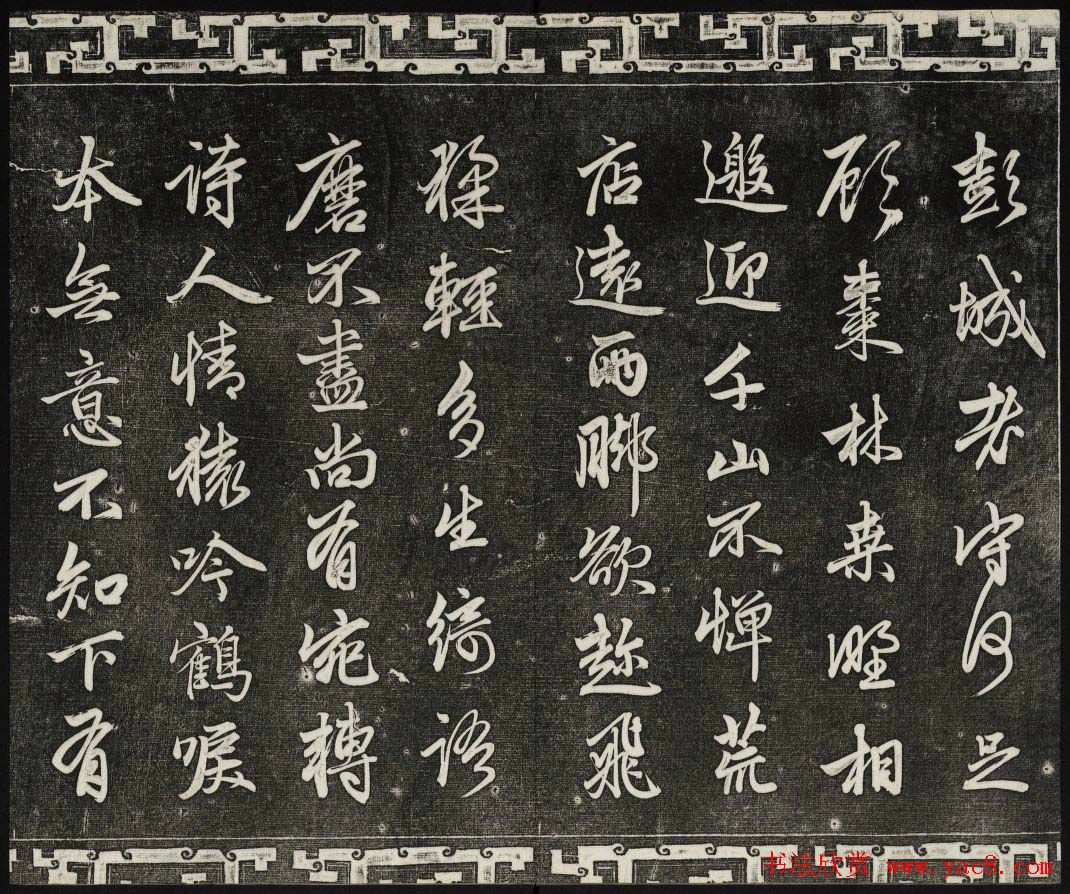 彭城老守何足
顧棗林桒野相
邀迎千山不憚荒
店遠兩脚欲趂飛
猱輕多生綺語
磨不盡尚有宛轉
詩人情猿吟鶴唳
本無意不知下有
书法欣赏 www.yac8.com